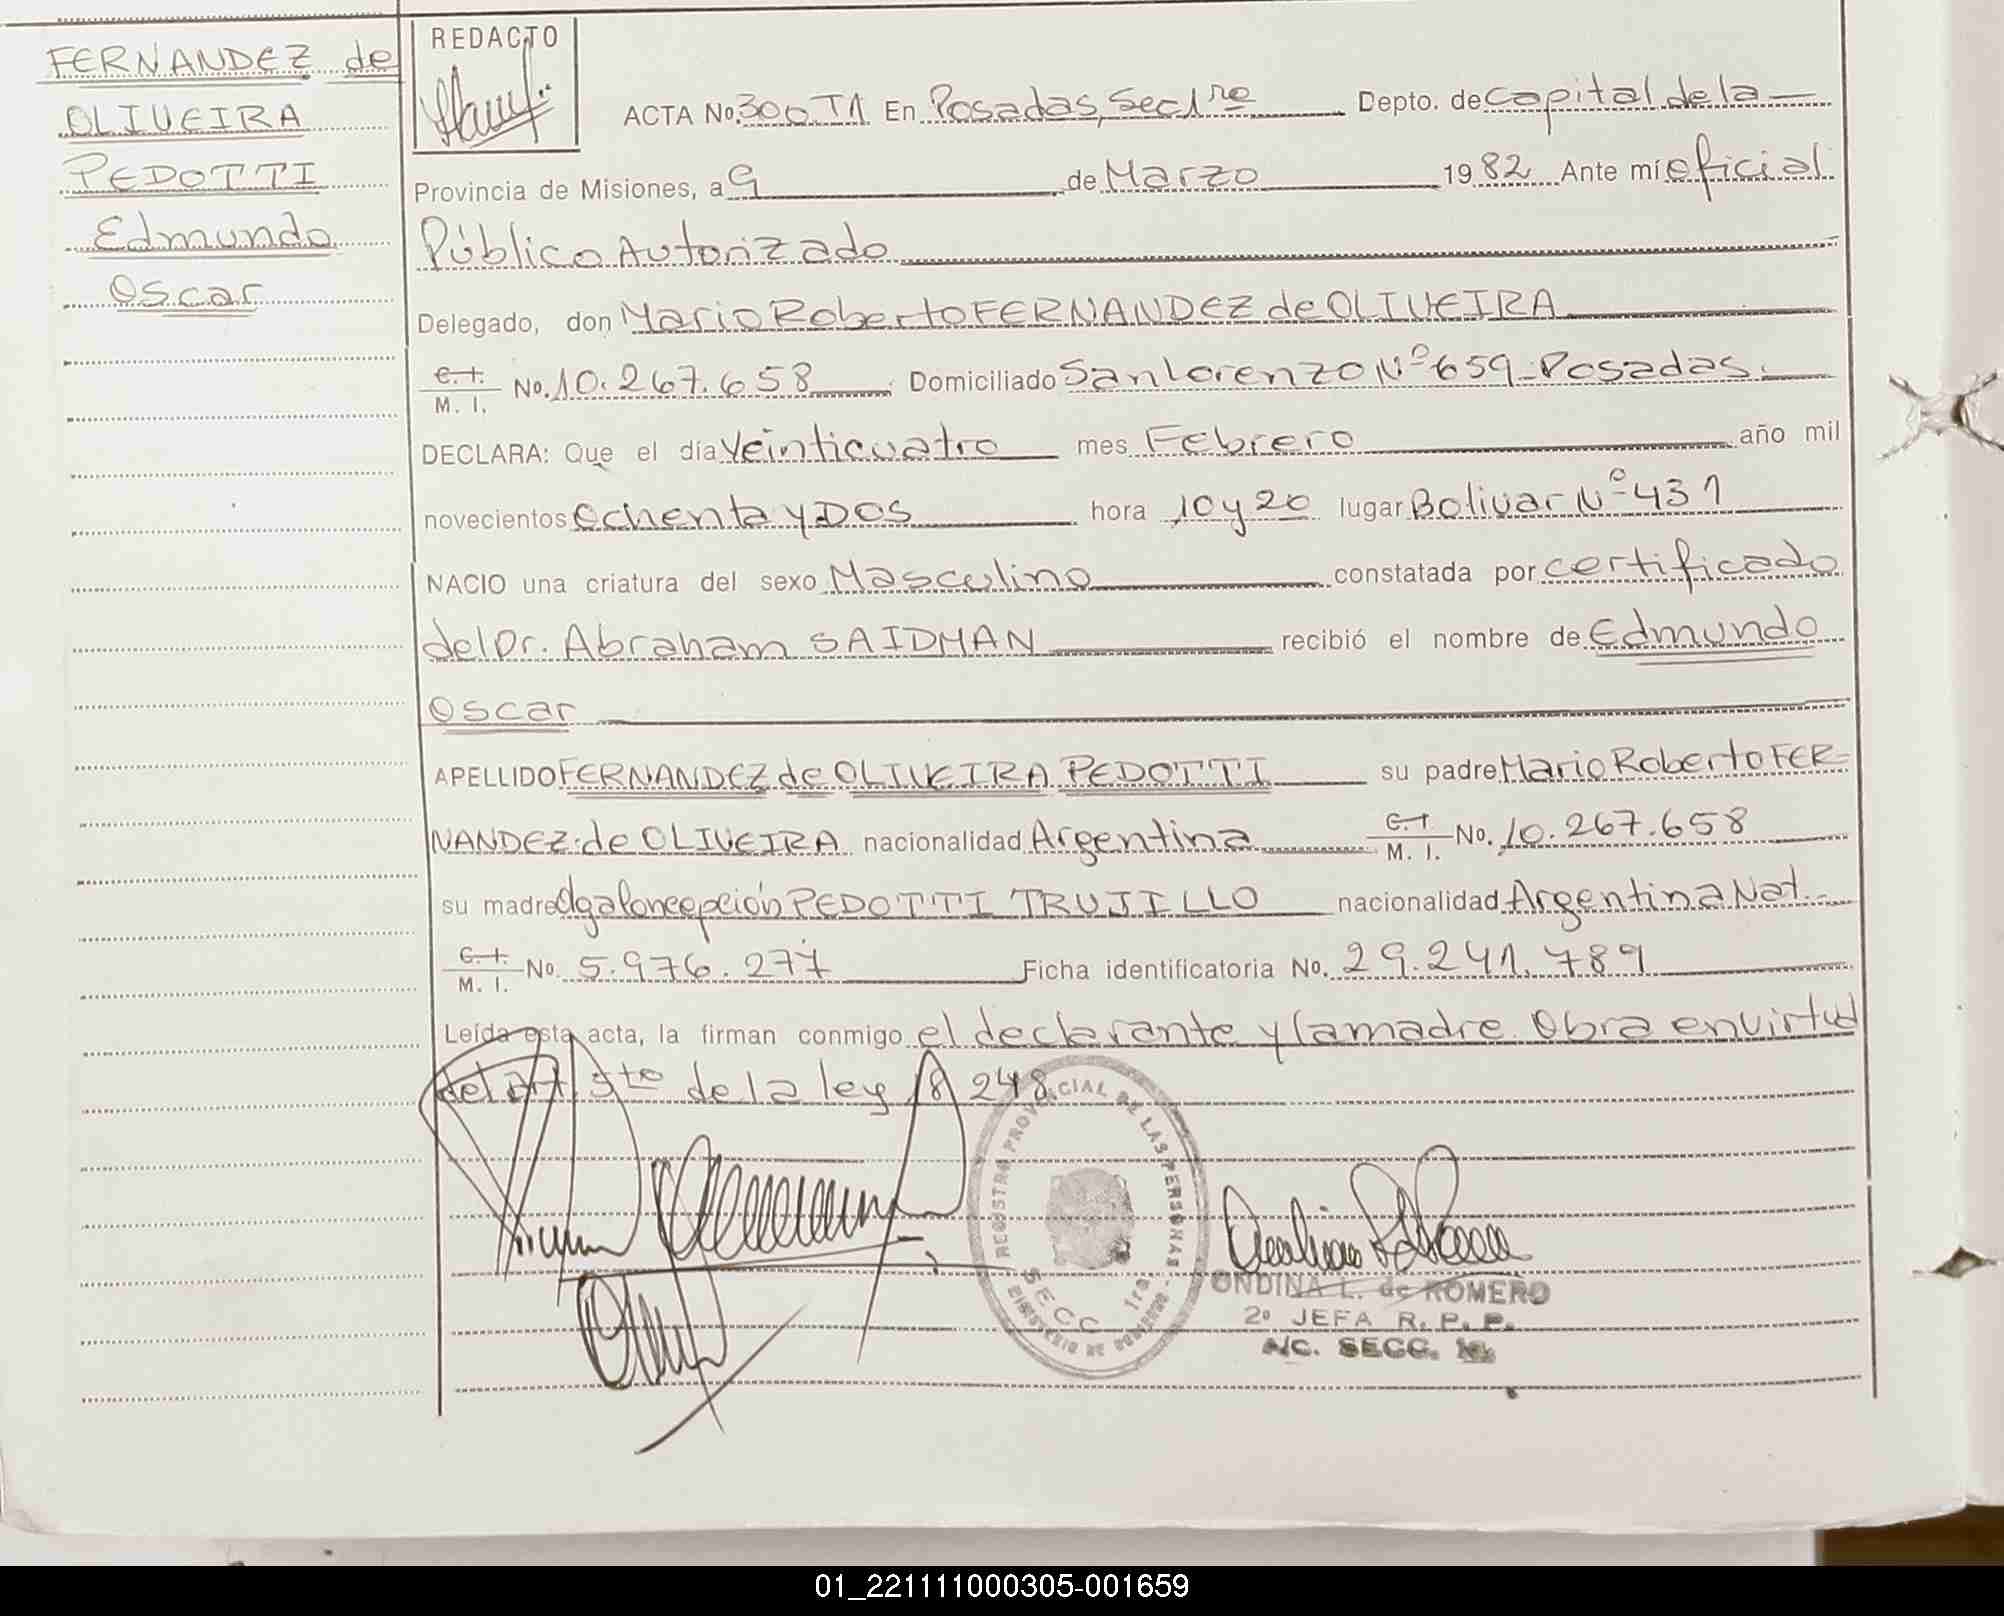 FERNANDEZ de
OLIVEIRA
PEDOTTI
Edmundo
Oscar
REDACTO
ACTA No. 300 T1 En Posadas, Sec 1ra Depto. de Capital de la
Provincia de Misiones, a 9 de Marzo 1982 Ante mí oficial
Público Autorizado
Delegado, don Mario Roberto FERNANDEZ de OLIVEIRA
C.I. M. I. No. 10.267.658 Domiciliado San Lorenzo Nº 659 - Posadas.
DECLARA: Que el día Veinticuatro mes Febrero año mil
novecientos ochenta y DOS hora 10 y 20 lugar Bolivar Nº 431
NACIO una criatura del sexo Masculino constatada por certificado
del Dr. Abraham SAIDMAN recibió el nombre de Edmundo
Oscar
APELLIDO FERNANDEZ de OLIVEIRA PEDOTTI su padre Mario Roberto FER-
NANDEZ de OLIVEIRA nacionalidad Argentina C.I. M. I. No. 10.267.658
su madre Olga Concepción PEDOTTI TRUJILLO nacionalidad Argentina Nat.
C.I. M. I. No. 5.976.277 Ficha identificatoria No. 29.241.789
Leída esta acta, la firman conmigo el declarante y la madre. Obra en virtud
del Art 5to de la ley 18 248
REGISTRO PROVINCIAL DE LAS PERSONAS - MINISTERIO DE GOBIERNO
SECC 1ra
ONDINA L. de ROMERO
2º JEFA R. P. P.
A/C. SECC.
01_221111000305-001659